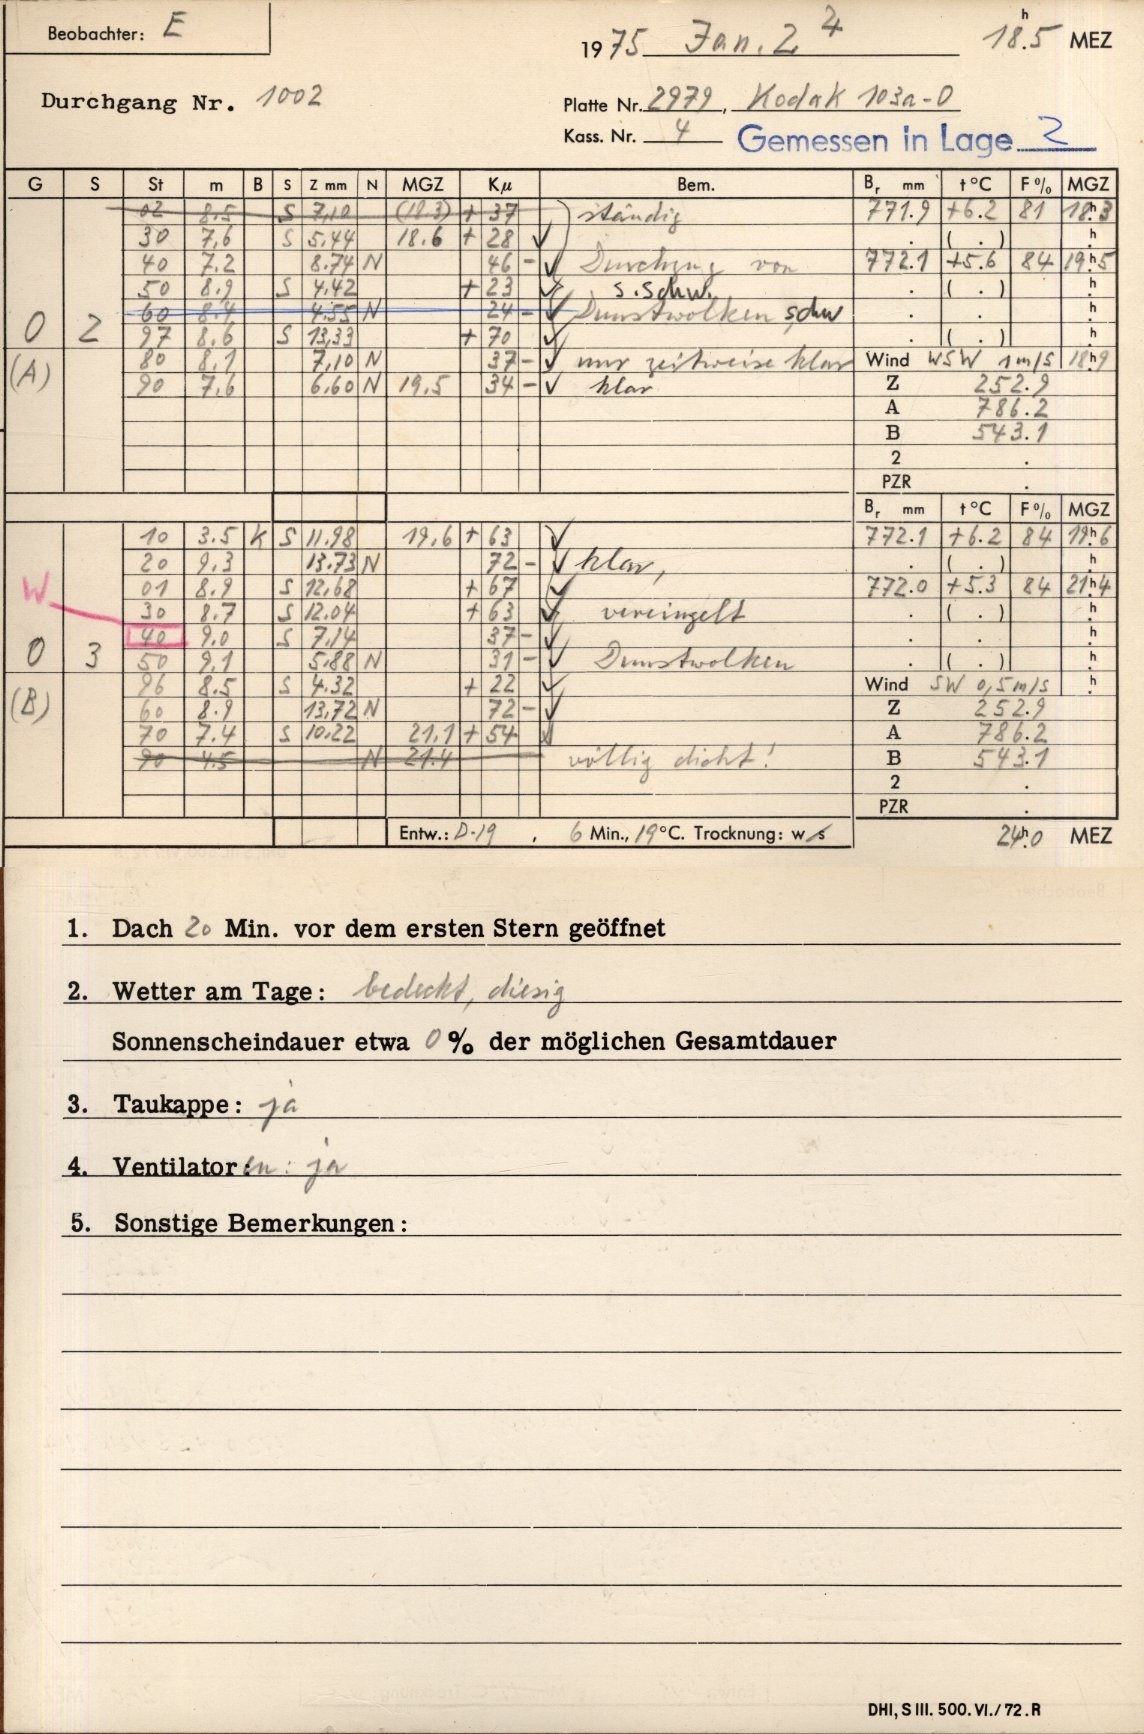 Beobachter: E
1975 Jan. 24 18h.5 MEZ
Durchgang Nr. 1002
Platte Nr. 2979, Kodak 103a-O
Kass. Nr. 4 Gemessen in Lage 2
G S St m B S Z mm N MGZ Kμ Bem. Br mm t°C F% MGZ
02 8.5 S 7,10 (18.3) + 37 ständig 771.9 +6.2 81 18h.3
30 7,6 S 5.44 18.6 + 28 ✓ . ( . ) h.
40 7.2 8.74 N 46 - ✓ Durchzug von 772.1 +5.6 84 19h.5
50 8.9 S 4.42 + 23 ✓ s.schw. . ( . ) h.
60 8.4 4.55 N 24 - ✓ Dunstwolken schw . . h.
0 2 97 8.6 S 13,33 + 70 ✓ . ( . ) h.
(A) 80 8.1 7,10 N 37 - ✓ nur zeitweise klar Wind WSW 1m/s 18h.9
90 7.6 6.60 N 19,5 34 - ✓ klar Z 252.9
A 786.2
B 543.1
2 .
PZR .
Br mm t°C F% MGZ
10 3.5 K S 11.98 19,6 + 63 ✓ 772.1 +6.2 84 19h.6
20 9,3 13.73 N 72 - ✓ klar, . ( . ) h.
01 8.9 S 12,68 + 67 ✓ 772.0 +5.3 84 21h.4
W 30 8.7 S 12.04 + 63 ✓ vereinzelt . ( . ) h.
40 9.0 S 7.14 37 - ✓ . . h.
0 3 50 9.1 5.88 N 31 - ✓ Dunstwolken . ( . ) h.
(B) 96 8.5 S 4.32 + 22 ✓ Wind SW 0,5m/s h.
60 8.9 13,72 N 72 - ✓ Z 252.9
70 7.4 S 10,22 21,1 + 54 A 786.2
90 4.5 N 21.4 völlig dicht! B 543.1
2 .
PZR .
Entw.: D-19 , 6 Min., 19°C. Trocknung: w/s 24h.0 MEZ
1. Dach 20 Min. vor dem ersten Stern geöffnet
2. Wetter am Tage: bedeckt, diesig
Sonnenscheindauer etwa 0% der möglichen Gesamtdauer
3. Taukappe: ja
4. Ventilator:en: ja
5. Sonstige Bemerkungen:
DHI, S III. 500. VI./72. R